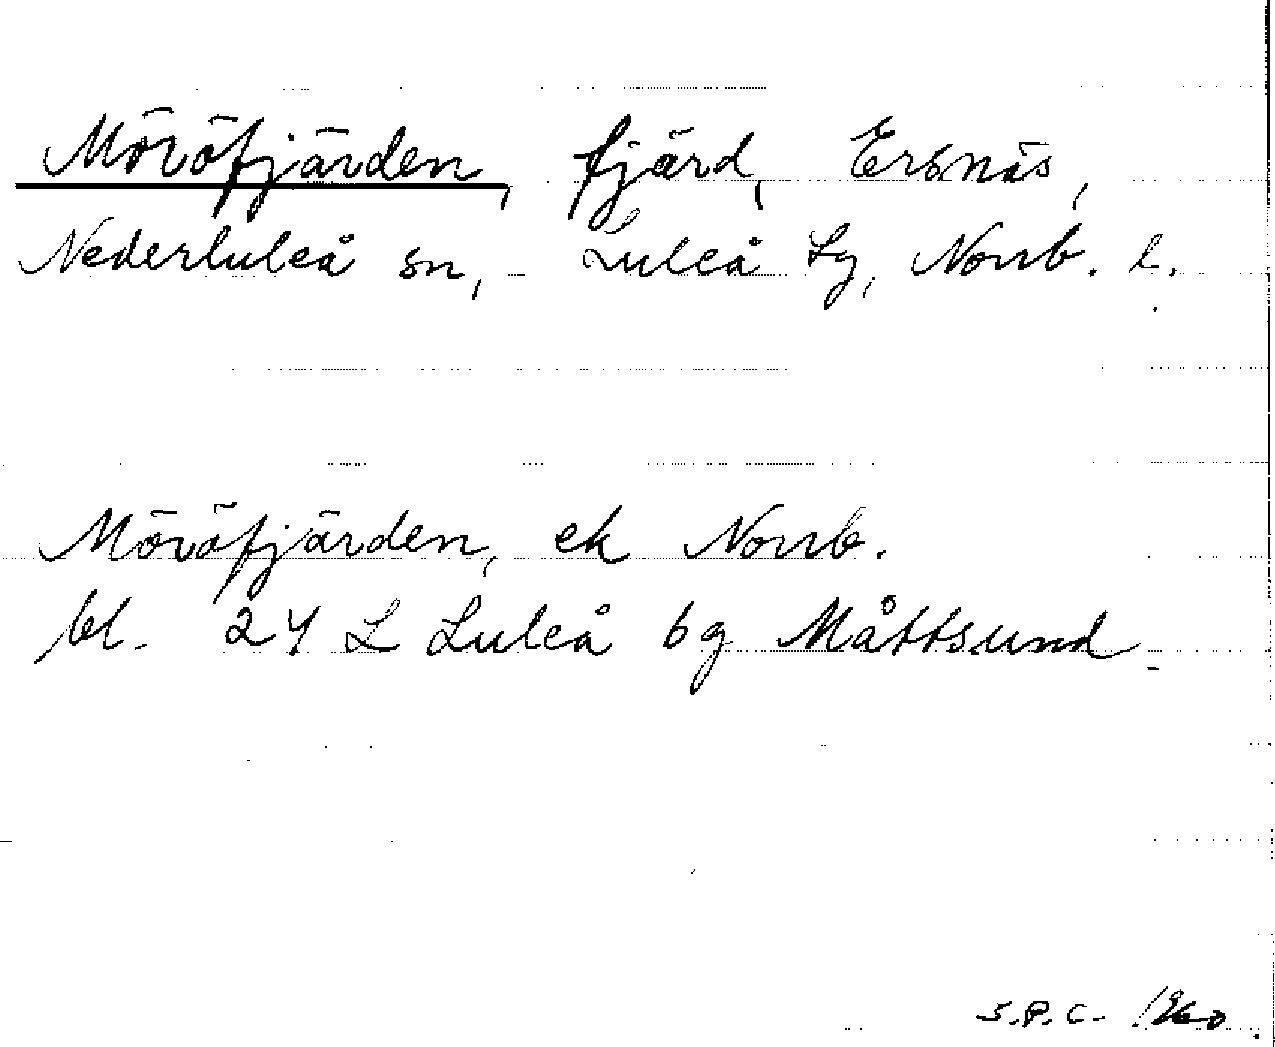 Möröfjärden, fjärd, Ersnäs,
Nederluleå sn, Luleå tg, Norrb. l.
Möröfjärden, ek Norrb.
bl. 24 L Luleå 6g Måttsund
S.P.C. 1960